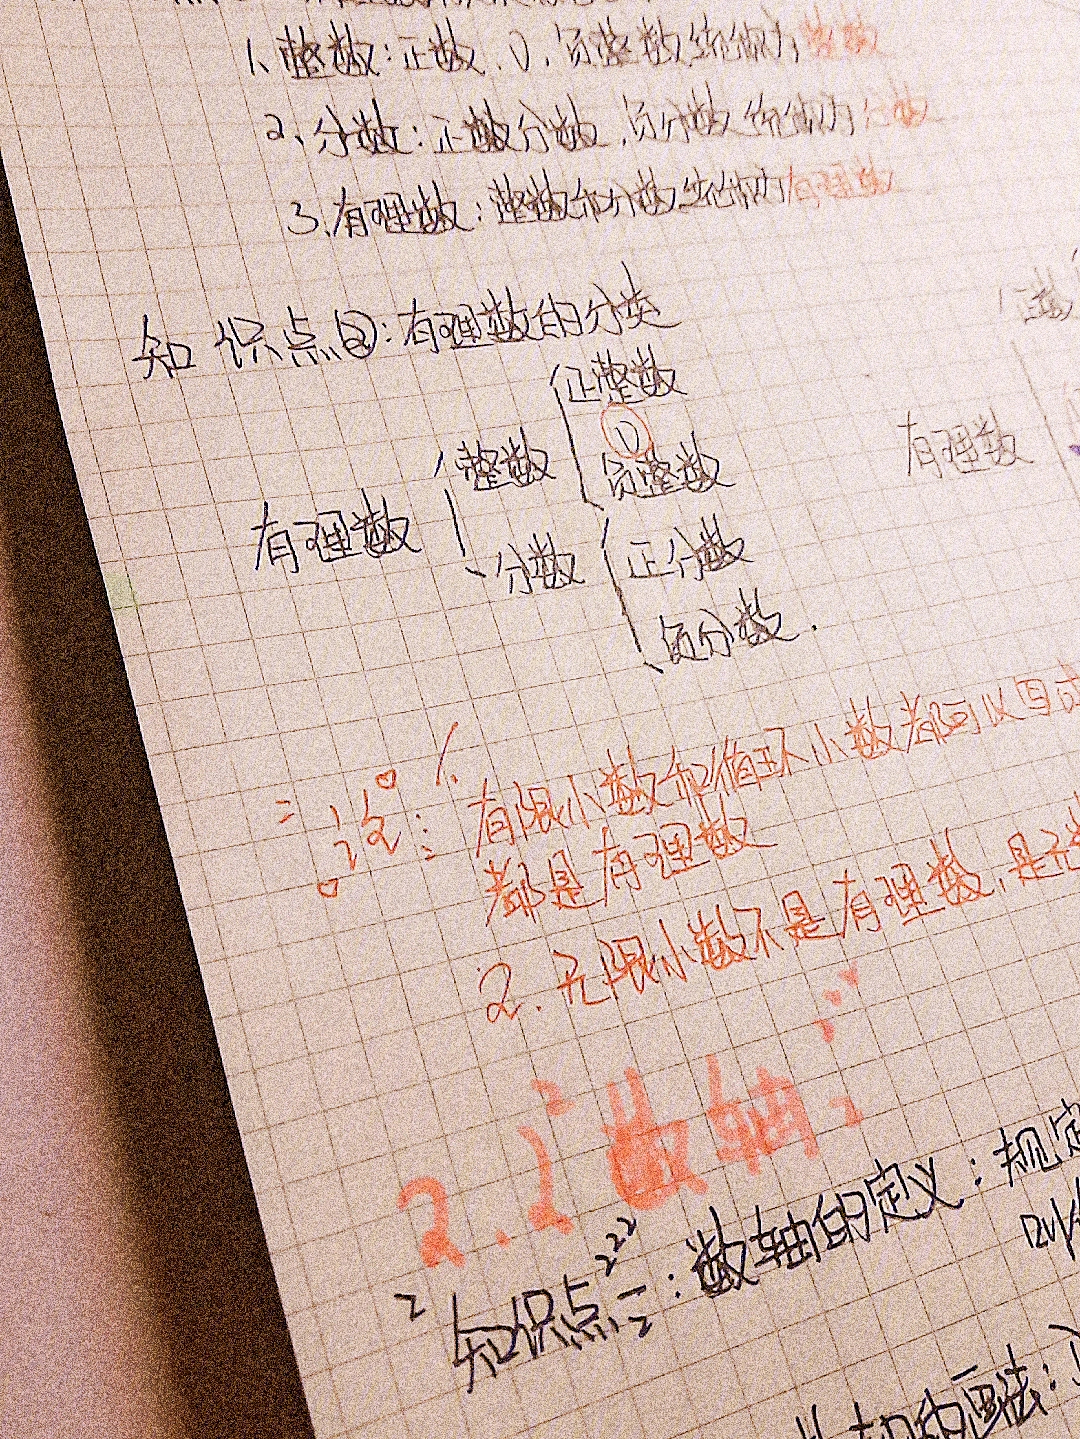 1、整数:正数、0、负整数统称为整数
2、分数:正数分数、负分数统称为分数
3、有理数:整数和分数统称为有理数
知识点②:有理数的分类
正整数
0
整数
负整数
有理数
分数
正分数
负分数.
正整
有理数
二说: 1. 有限小数和循环小数都可以写成
都是有理数
2. 无限小数不是有理数,是无
2.2数轴:
知识点二:数轴的定义:规定
的画法: